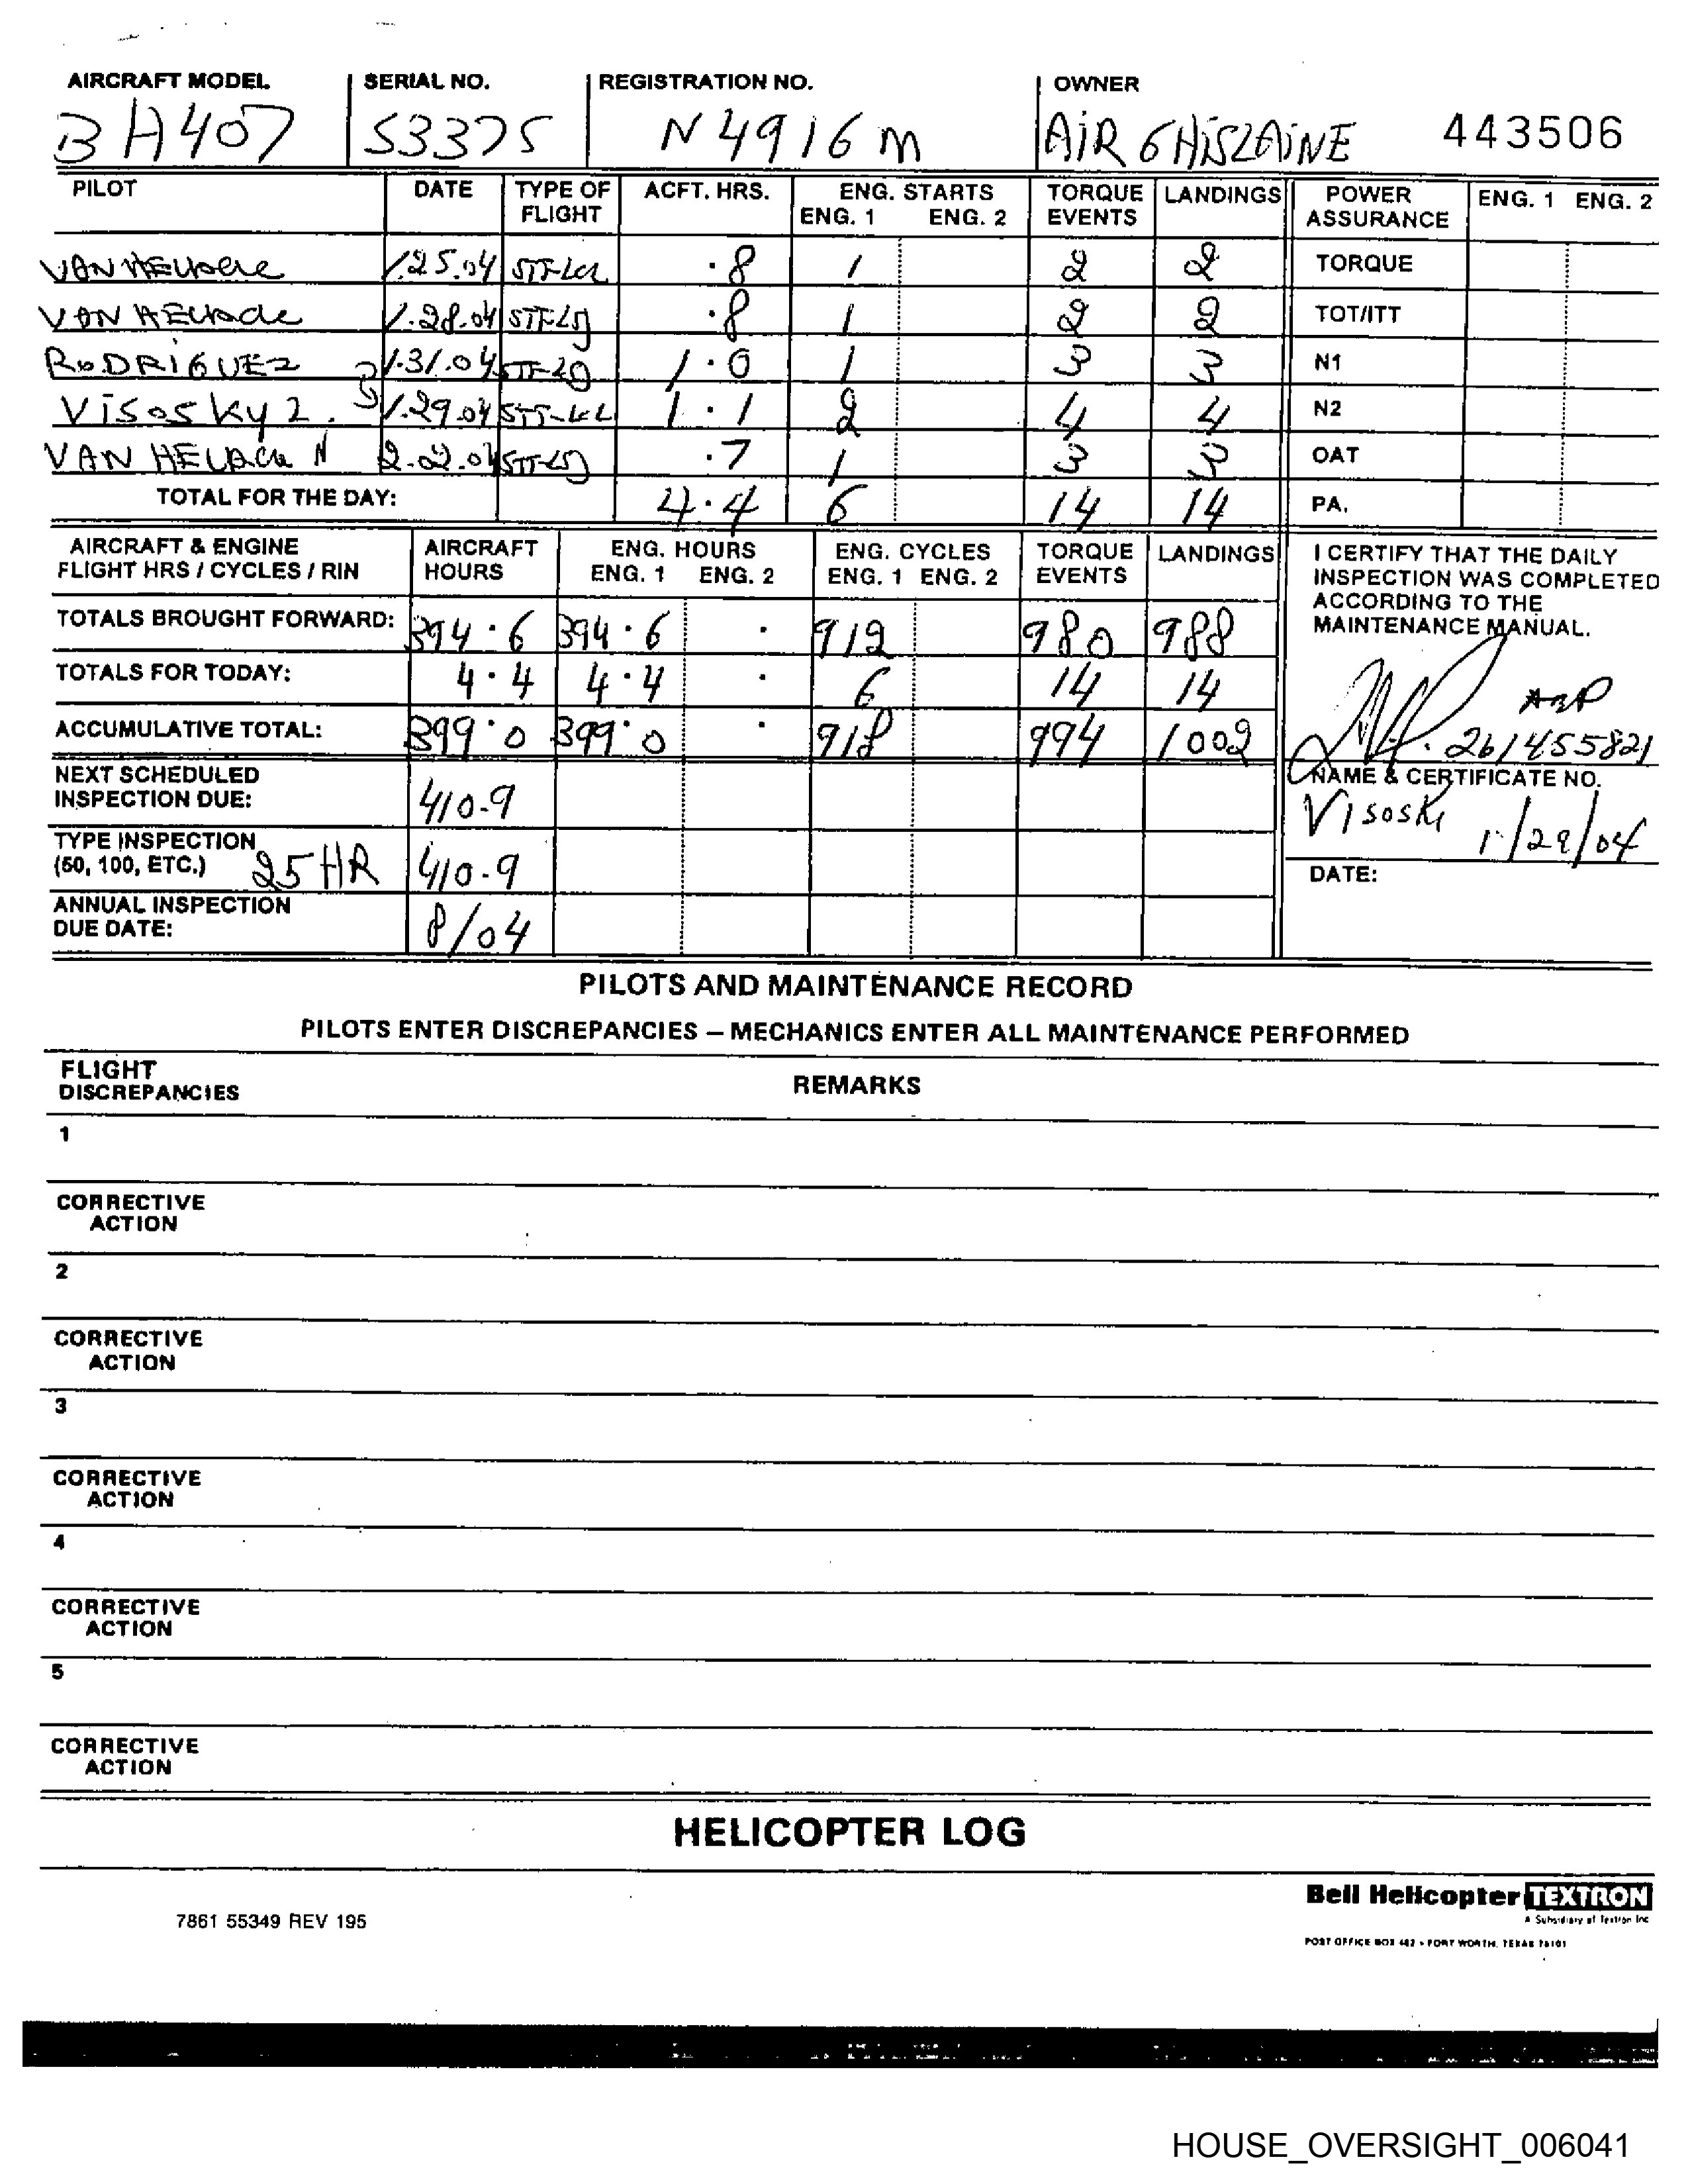 AIRCRAFT MODEL SERIAL NO. REGISTRATION NO. OWNER
BH407 53375 N4916M AIR GHISLAINE 443506
PILOT DATE TYPE OF FLIGHT ACFT. HRS. ENG. STARTS ENG. 1 ENG. 2 TORQUE EVENTS LANDINGS POWER ASSURANCE ENG. 1 ENG. 2
1.25.04 .8 1 2 2 TORQUE
1.28.04 .8 1 2 2 TOT/ITT
RODRIGUEZ 1.31.04 1.0 1 3 3 N1
Visosky 2. 1.29.04 1.1 2 4 4 N2
VAN 2.2.04 .7 1 3 3 OAT
TOTAL FOR THE DAY: 4.4 6 14 14 PA.
AIRCRAFT & ENGINE FLIGHT HRS / CYCLES / RIN AIRCRAFT HOURS ENG. HOURS ENG. 1 ENG. 2 ENG. CYCLES ENG. 1 ENG. 2 TORQUE EVENTS LANDINGS
I CERTIFY THAT THE DAILY
INSPECTION WAS COMPLETED
ACCORDING TO THE
MAINTENANCE MANUAL.
TOTALS BROUGHT FORWARD: 394.6 394.6 . 912 980 988
TOTALS FOR TODAY: 4.4 4.4 . 6 14 14
ACCUMULATIVE TOTAL: 399.0 399.0 . 918 994 1002
A&P
261455821
NAME & CERTIFICATE NO.
NEXT SCHEDULED
INSPECTION DUE: 410.9
Visoski 1/29/04
TYPE INSPECTION
(50, 100, ETC.) 25 HR 410.9
DATE:
ANNUAL INSPECTION
DUE DATE: 8/04
PILOTS AND MAINTENANCE RECORD
PILOTS ENTER DISCREPANCIES – MECHANICS ENTER ALL MAINTENANCE PERFORMED
FLIGHT
DISCREPANCIES REMARKS
1
CORRECTIVE
ACTION
2
CORRECTIVE
ACTION
3
CORRECTIVE
ACTION
4
CORRECTIVE
ACTION
5
CORRECTIVE
ACTION
HELICOPTER LOG
Bell Helicopter TEXTRON
A Subsidiary of Textron Inc
7861 55349 REV 195
POST OFFICE BOX 482 • FORT WORTH, TEXAS 76101
HOUSE_OVERSIGHT_006041